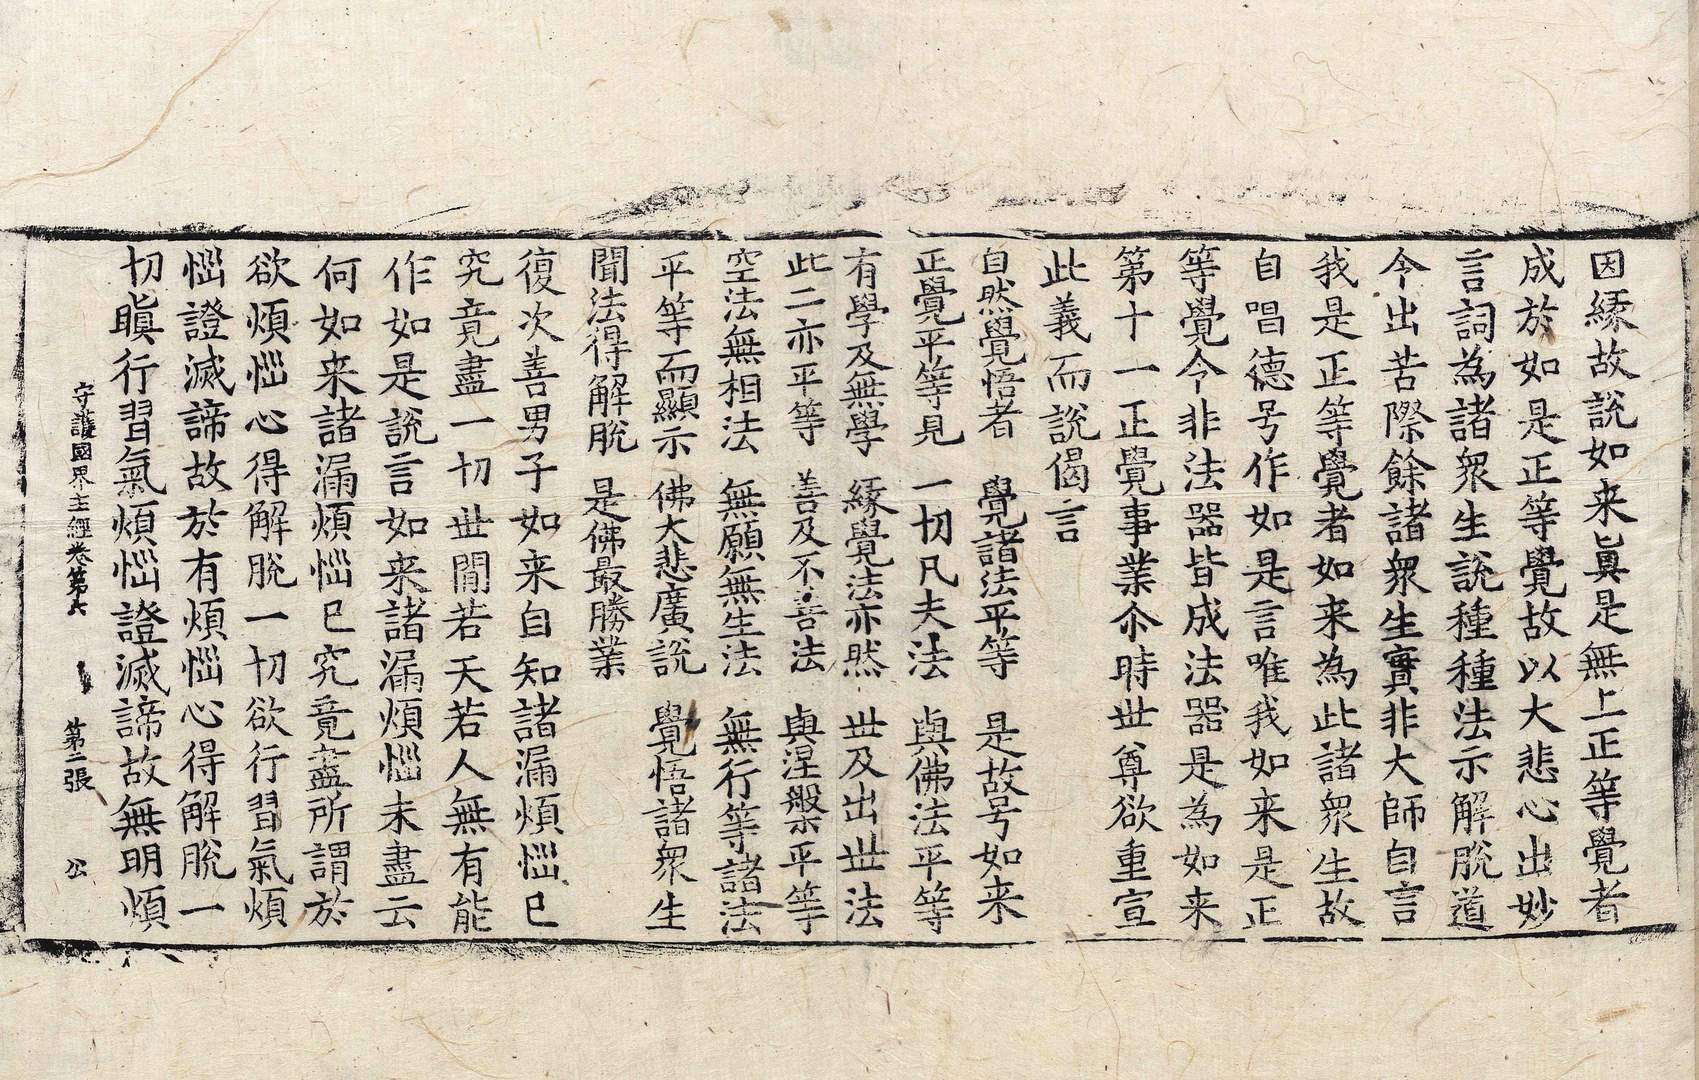 因緣故說如来眞是無上正等覺者
成於如是正等覺故以大悲心出妙
言詞為諸衆生說種種法示解脫道
今出苦際餘諸衆生實非大師自言
我是正等覺者如来為此諸衆生故
自唱德号作如是言唯我如来是正
等覺今非法器皆成法器是為如来
第十一正覺事業尒時世尊欲重宣
此義而說偈言
自然覺悟者　覺諸法平等　是故号如来
正覺平等見　一切凡夫法　與佛法平等
有學及無學　緣覺法亦然　世及出世法
此二亦平等　善及不善法　與涅槃平等
空法無相法　無願無生法　無行等諸法
平等而顯示　佛大悲廣說　覺悟諸衆生
聞法得解脫　是佛最勝業
復次善男子如来自知諸漏煩惱已
究竟盡一切世間若天若人無有能
作如是說言如来諸漏煩惱未盡云
何如来諸漏煩惱已究竟盡所謂於
欲煩惱心得解脫一切欲行習氣煩
惱證滅諦故於有煩惱心得解脫一
切瞋行習氣煩惱證滅諦故無明煩
守護國界主經卷第六　第二張　公